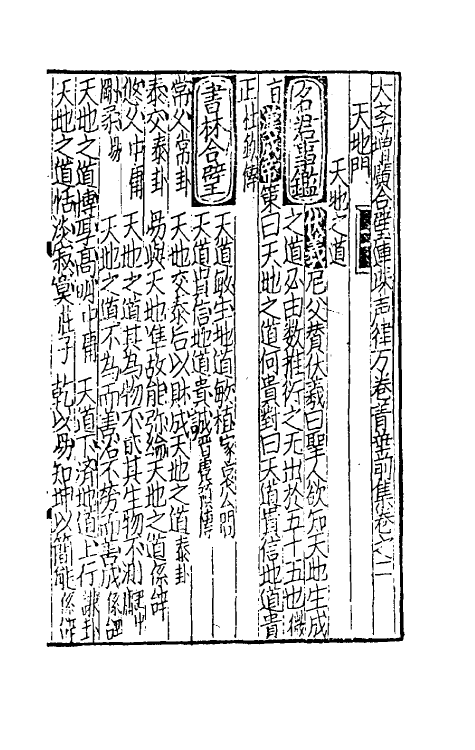 大字增廣合璧連珠声律万卷菁華前集卷之二
天地門
天地之道
名君事鑑 伏羲 尼父贊伏羲曰聖人欲知天地生成
之道必由数推衍之无出於五十五也
策曰天地之道何貴對曰天道貴信地道貴
正 傳
書林合璧 天道敏生地道敏植家語哀公問
天道貴信地道貴誠晋
常久 常卦 天地交泰后以財成天地之道泰卦
泰交泰卦 易與天地準故能弥綸天地之道係辞
悠久中庸 天地之道其為物不貳其生物不測中
剛柔易 天地之道不為而善治不劳而善成係
天地之道博厚高明中庸 天道下济地道上行謙卦
天地之道恬淡寂寞庄子 乾以易知坤以簡能係辞